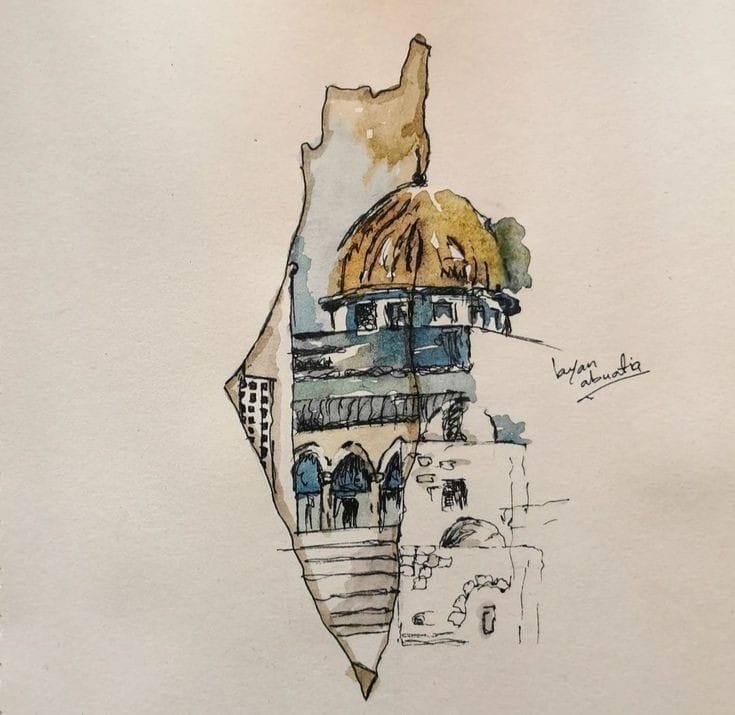 layan
abuatia